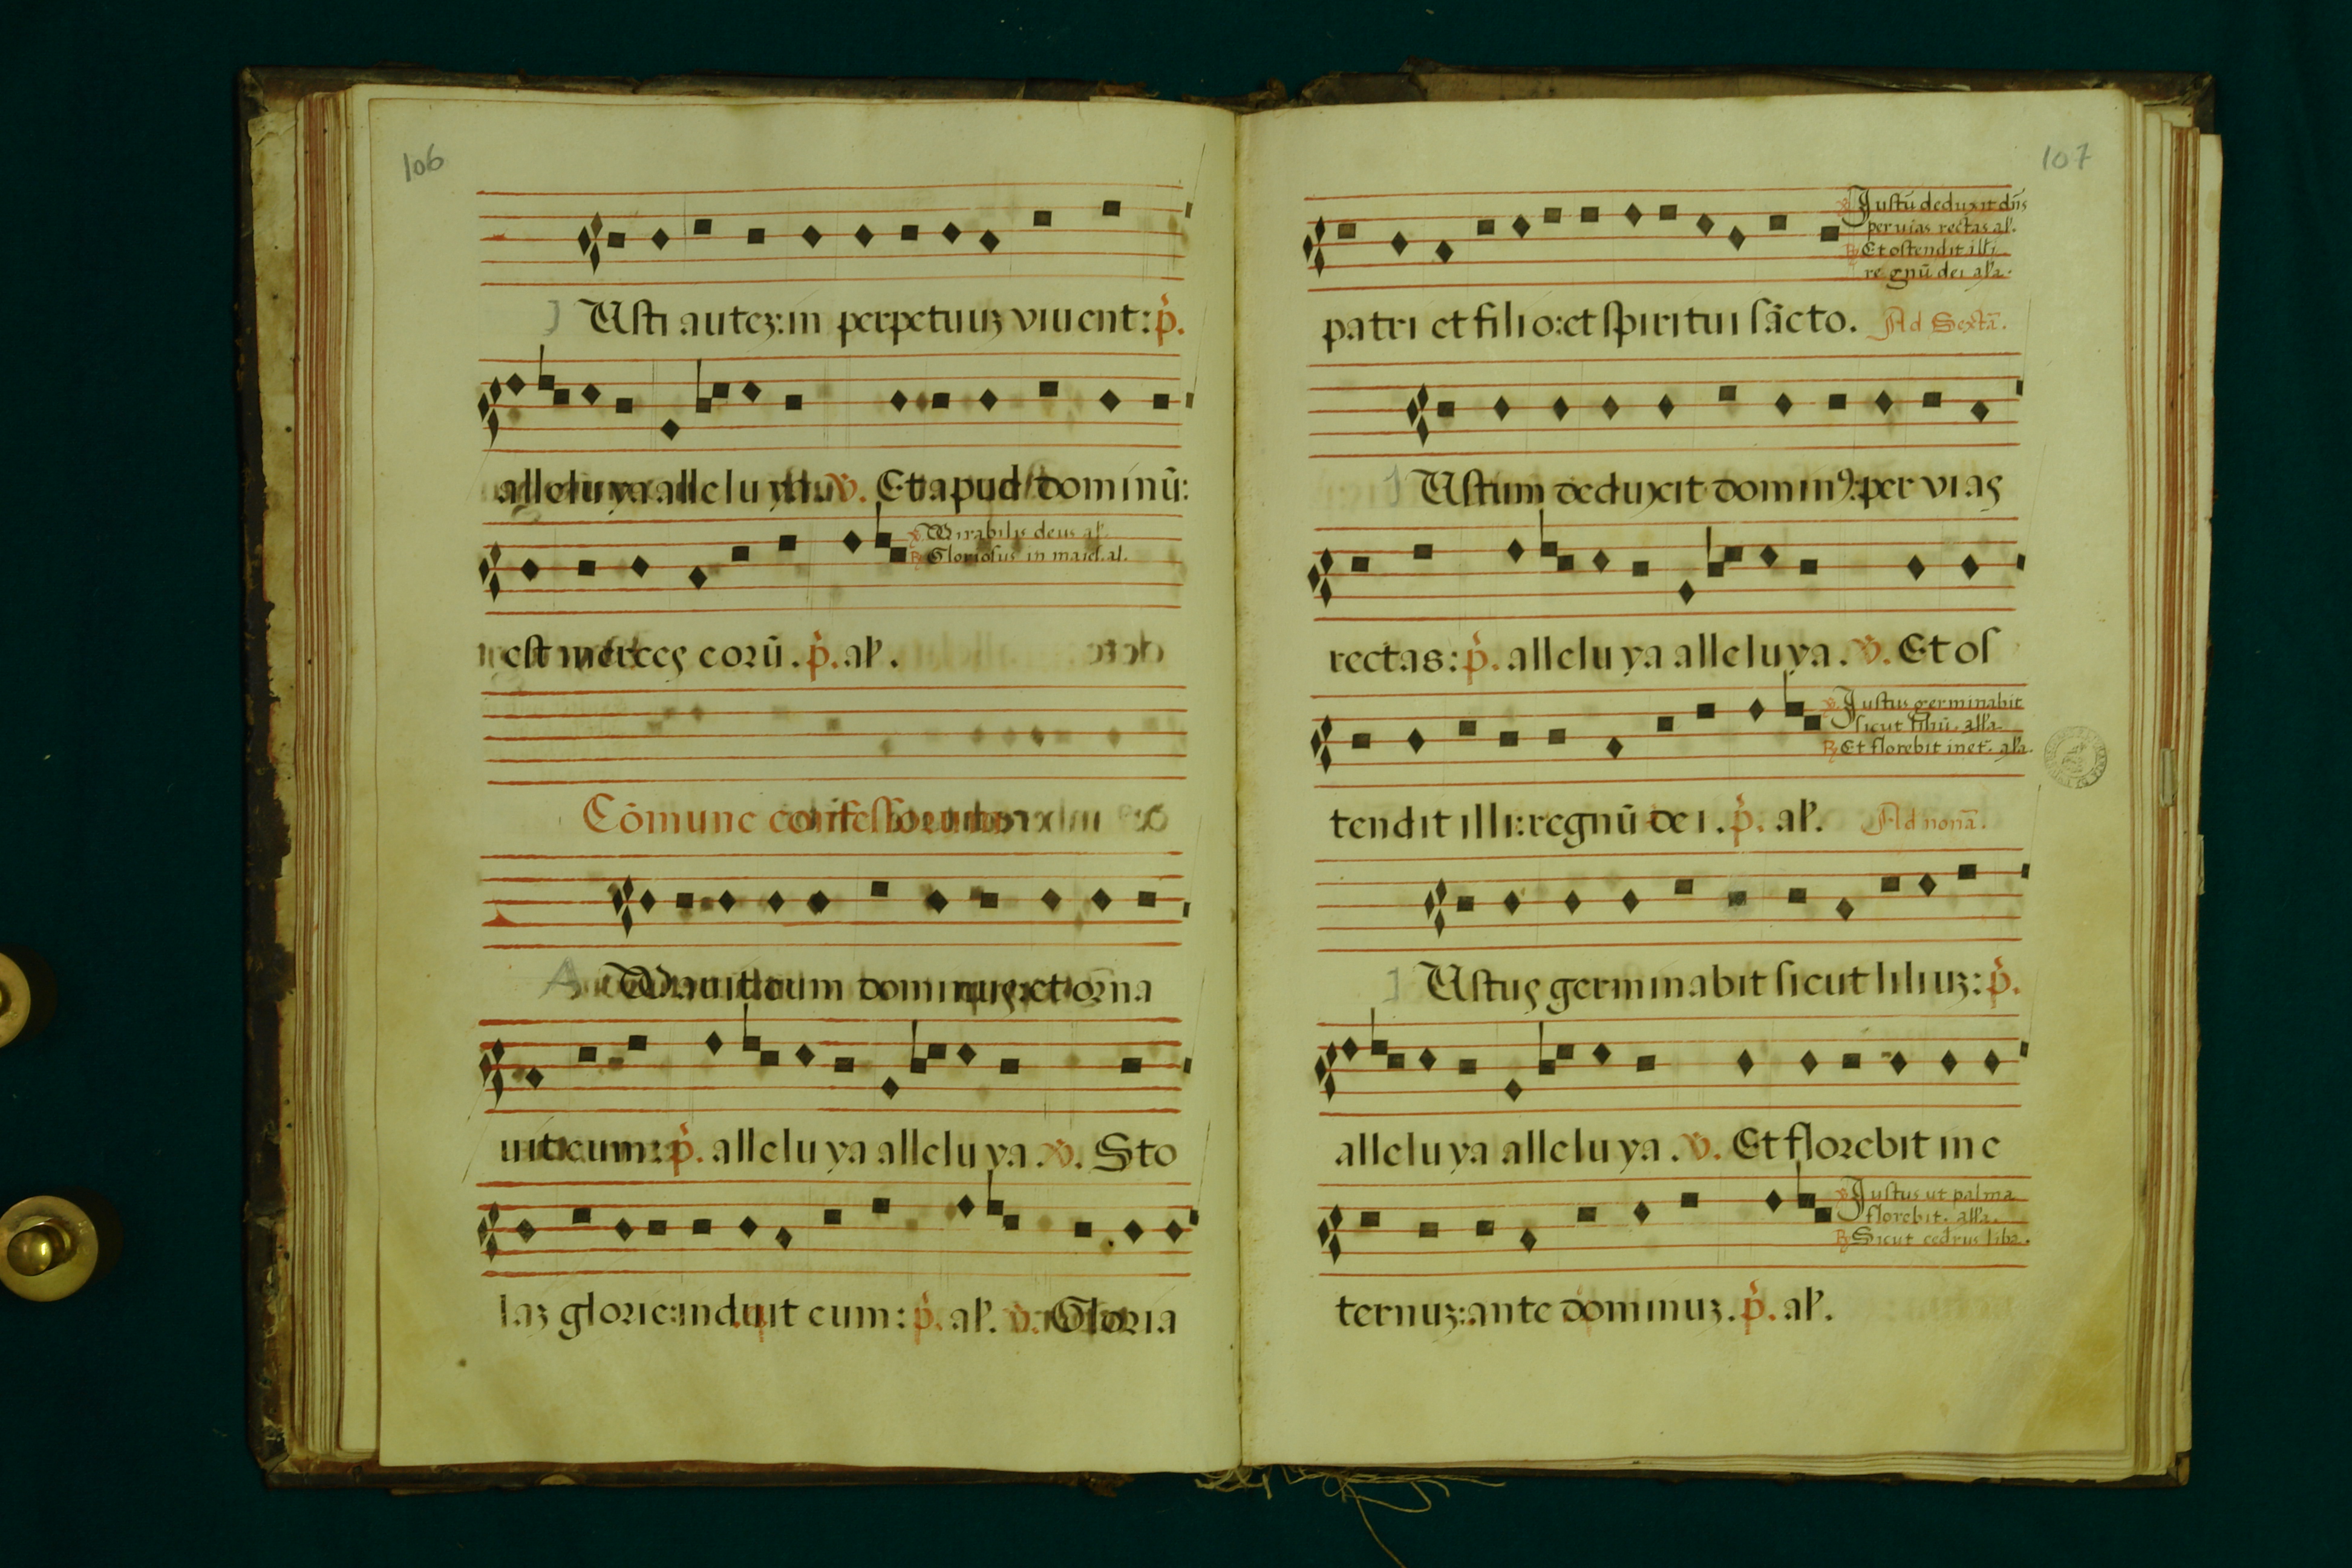 106
J Usti autez: in perpetuuz viuent: p̓.
alleluya alleluya. v̓. Et apud dominū:
v̓ Mirabilis deus al.
R̓ Gloriosus in maies. al.
est merces eorū. p̓. al'.
Cōmune confessorum
A Mauit eum dominus: et orna
uit eum: p̓. alleluya alleluya. v̓. Sto
laz glorie: induit eum: p̓. al'. v̓. Gloria
107
v̓ Justū deduxit dn̄s
per uias rectas al'.
R̓ Et ostendit illi
regnū dei al'a.
patri et filio: et spiritui sācto. Ad Sextā.
J Ustum deduxit domin9: per vias
rectas: p̓. alleluya alleluya. v̓. Et os
v̓ Justus germinabit
sicut liliū. all'a.
R̓ Et florebit in et. al'a.
tendit illi: regnū dei. p̓. al'. Ad nonā.
J Ustus germinabit sicut liliuz: p̓.
alleluya alleluya. v̓. Et florebit in e
v̓ Justus ut palma
florebit. all'a.
R̓ Sicut cedrus liba.
ternuz: ante dominuz. p̓. al'.